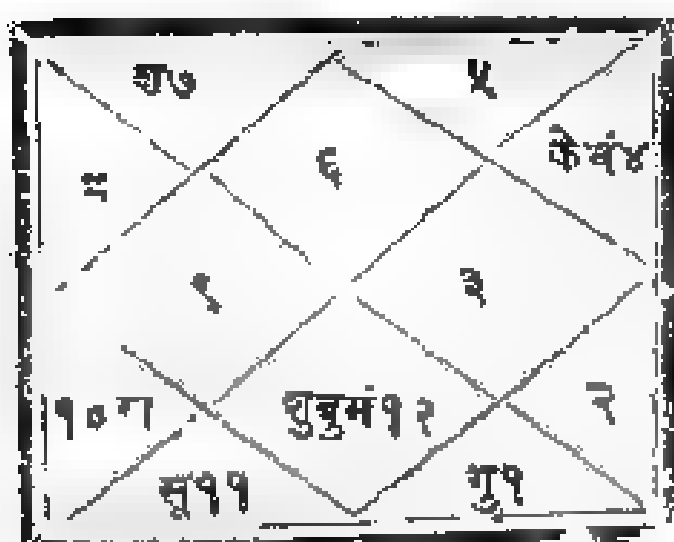 श७
५
६
के चं४
८
९
३
१०रा
शुबुमं१२
२
सू११
गु१